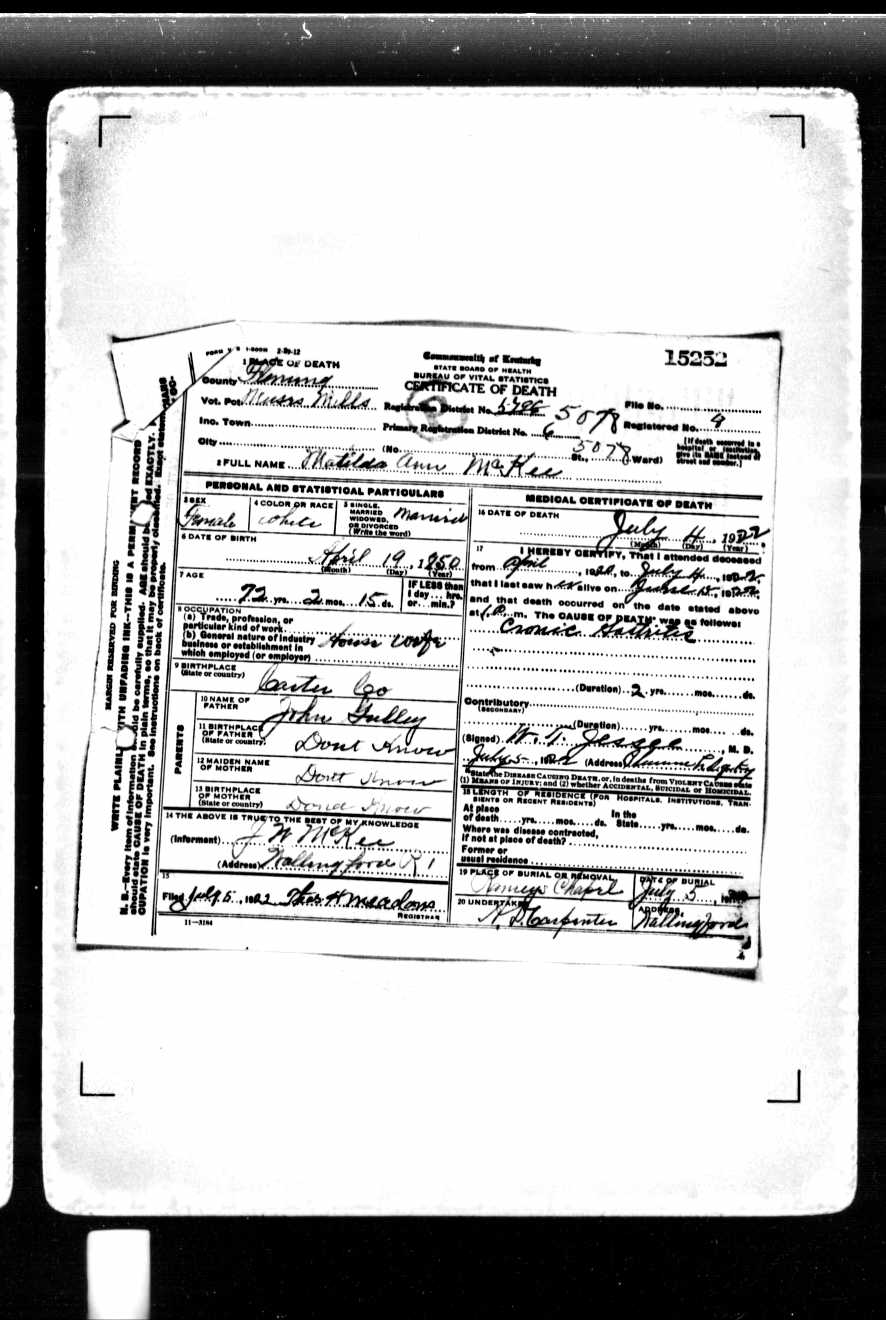 FORM V. S. 1-500M 2-29-12
1 PLACE OF DEATH
County Fleming
Vot. Pct. Muses Mills
Inc. Town
City
Commonwealth of Kentucky
STATE BOARD OF HEALTH
BUREAU OF VITAL STATISTICS
CERTIFICATE OF DEATH
Registration District No.
Primary Registration District No. 6
5078
15252
File No.
Registered No. 9
(No. St., 5078 Ward)
[If death occurred in a
hospital or institution,
give its NAME instead of
street and number.]
2 FULL NAME Matilda Ann McKee
PERSONAL AND STATISTICAL PARTICULARS
3 SEX
Female
4 COLOR OR RACE
White
5 SINGLE,
MARRIED
WIDOWED,
OR DIVORCED
(Write the word)
Married
6 DATE OF BIRTH
April 19, 1850
(Month) (Day) (Year)
7 AGE
72 yrs. 2 mos. 15 ds.
IF LESS than
1 day... hrs.
or... min.?
8 OCCUPATION
(a) Trade, profession, or
particular kind of work
(b) General nature of industry
business or establishment in
which employed (or employer)
House Wife
9 BIRTHPLACE
(State or country)
Carter Co
PARENTS
10 NAME OF
FATHER
John Gulley
11 BIRTHPLACE
OF FATHER
(State or country)
Dont Know
12 MAIDEN NAME
OF MOTHER
Dont Know
13 BIRTHPLACE
OF MOTHER
(State or country)
Know
14 THE ABOVE IS TRUE TO THE BEST OF MY KNOWLEDGE
(Informant) J W McKee
(Address) Wallingford R 1
15
Filed July 5, 1922 Thos H Meadows
REGISTRAR
11-3184
MEDICAL CERTIFICATE OF DEATH
16 DATE OF DEATH
July 4, 1922
(Month) (Day) (Year)
17 I HEREBY CERTIFY, That I attended deceased
from April, 1920, to July 4, 1922
that I last saw her alive on June 15, 1922
and that death occurred on the date stated above
at m. The CAUSE OF DEATH* was as follows:
Cronic
(Duration) 2 yrs. mos. ds.
Contributory
(SECONDARY)
(Duration) yrs. mos. ds.
(Signed) W. T. Jessee, M. D.
July 5, 1922 (Address)
*State the DISEASE CAUSING DEATH, or, in deaths from VIOLENT CAUSES state
(1) MEANS OF INJURY; and (2) whether ACCIDENTAL, SUICIDAL or HOMICIDAL.
18 LENGTH OF RESIDENCE (FOR HOSPITALS, INSTITUTIONS, TRAN-
SIENTS OR RECENT RESIDENTS)
At place In the
of death yrs. mos. ds. State yrs. mos. ds.
Where was disease contracted,
if not at place of death?
Former or
usual residence
19 PLACE OF BURIAL OR REMOVAL
Chapel
DATE OF BURIAL
July 5,
20 UNDERTAKER
Carpenter
ADDRESS
Wallingford
MARGIN RESERVED FOR BINDING
WRITE PLAINLY WITH UNFADING INK—THIS IS A PERMANENT RECORD
N. B.—Every item of information should be carefully supplied. AGE should be stated EXACTLY.
should state CAUSE OF DEATH in plain terms, so that it may be properly classified.
CUPATION is very important. See instructions on back of certificate.